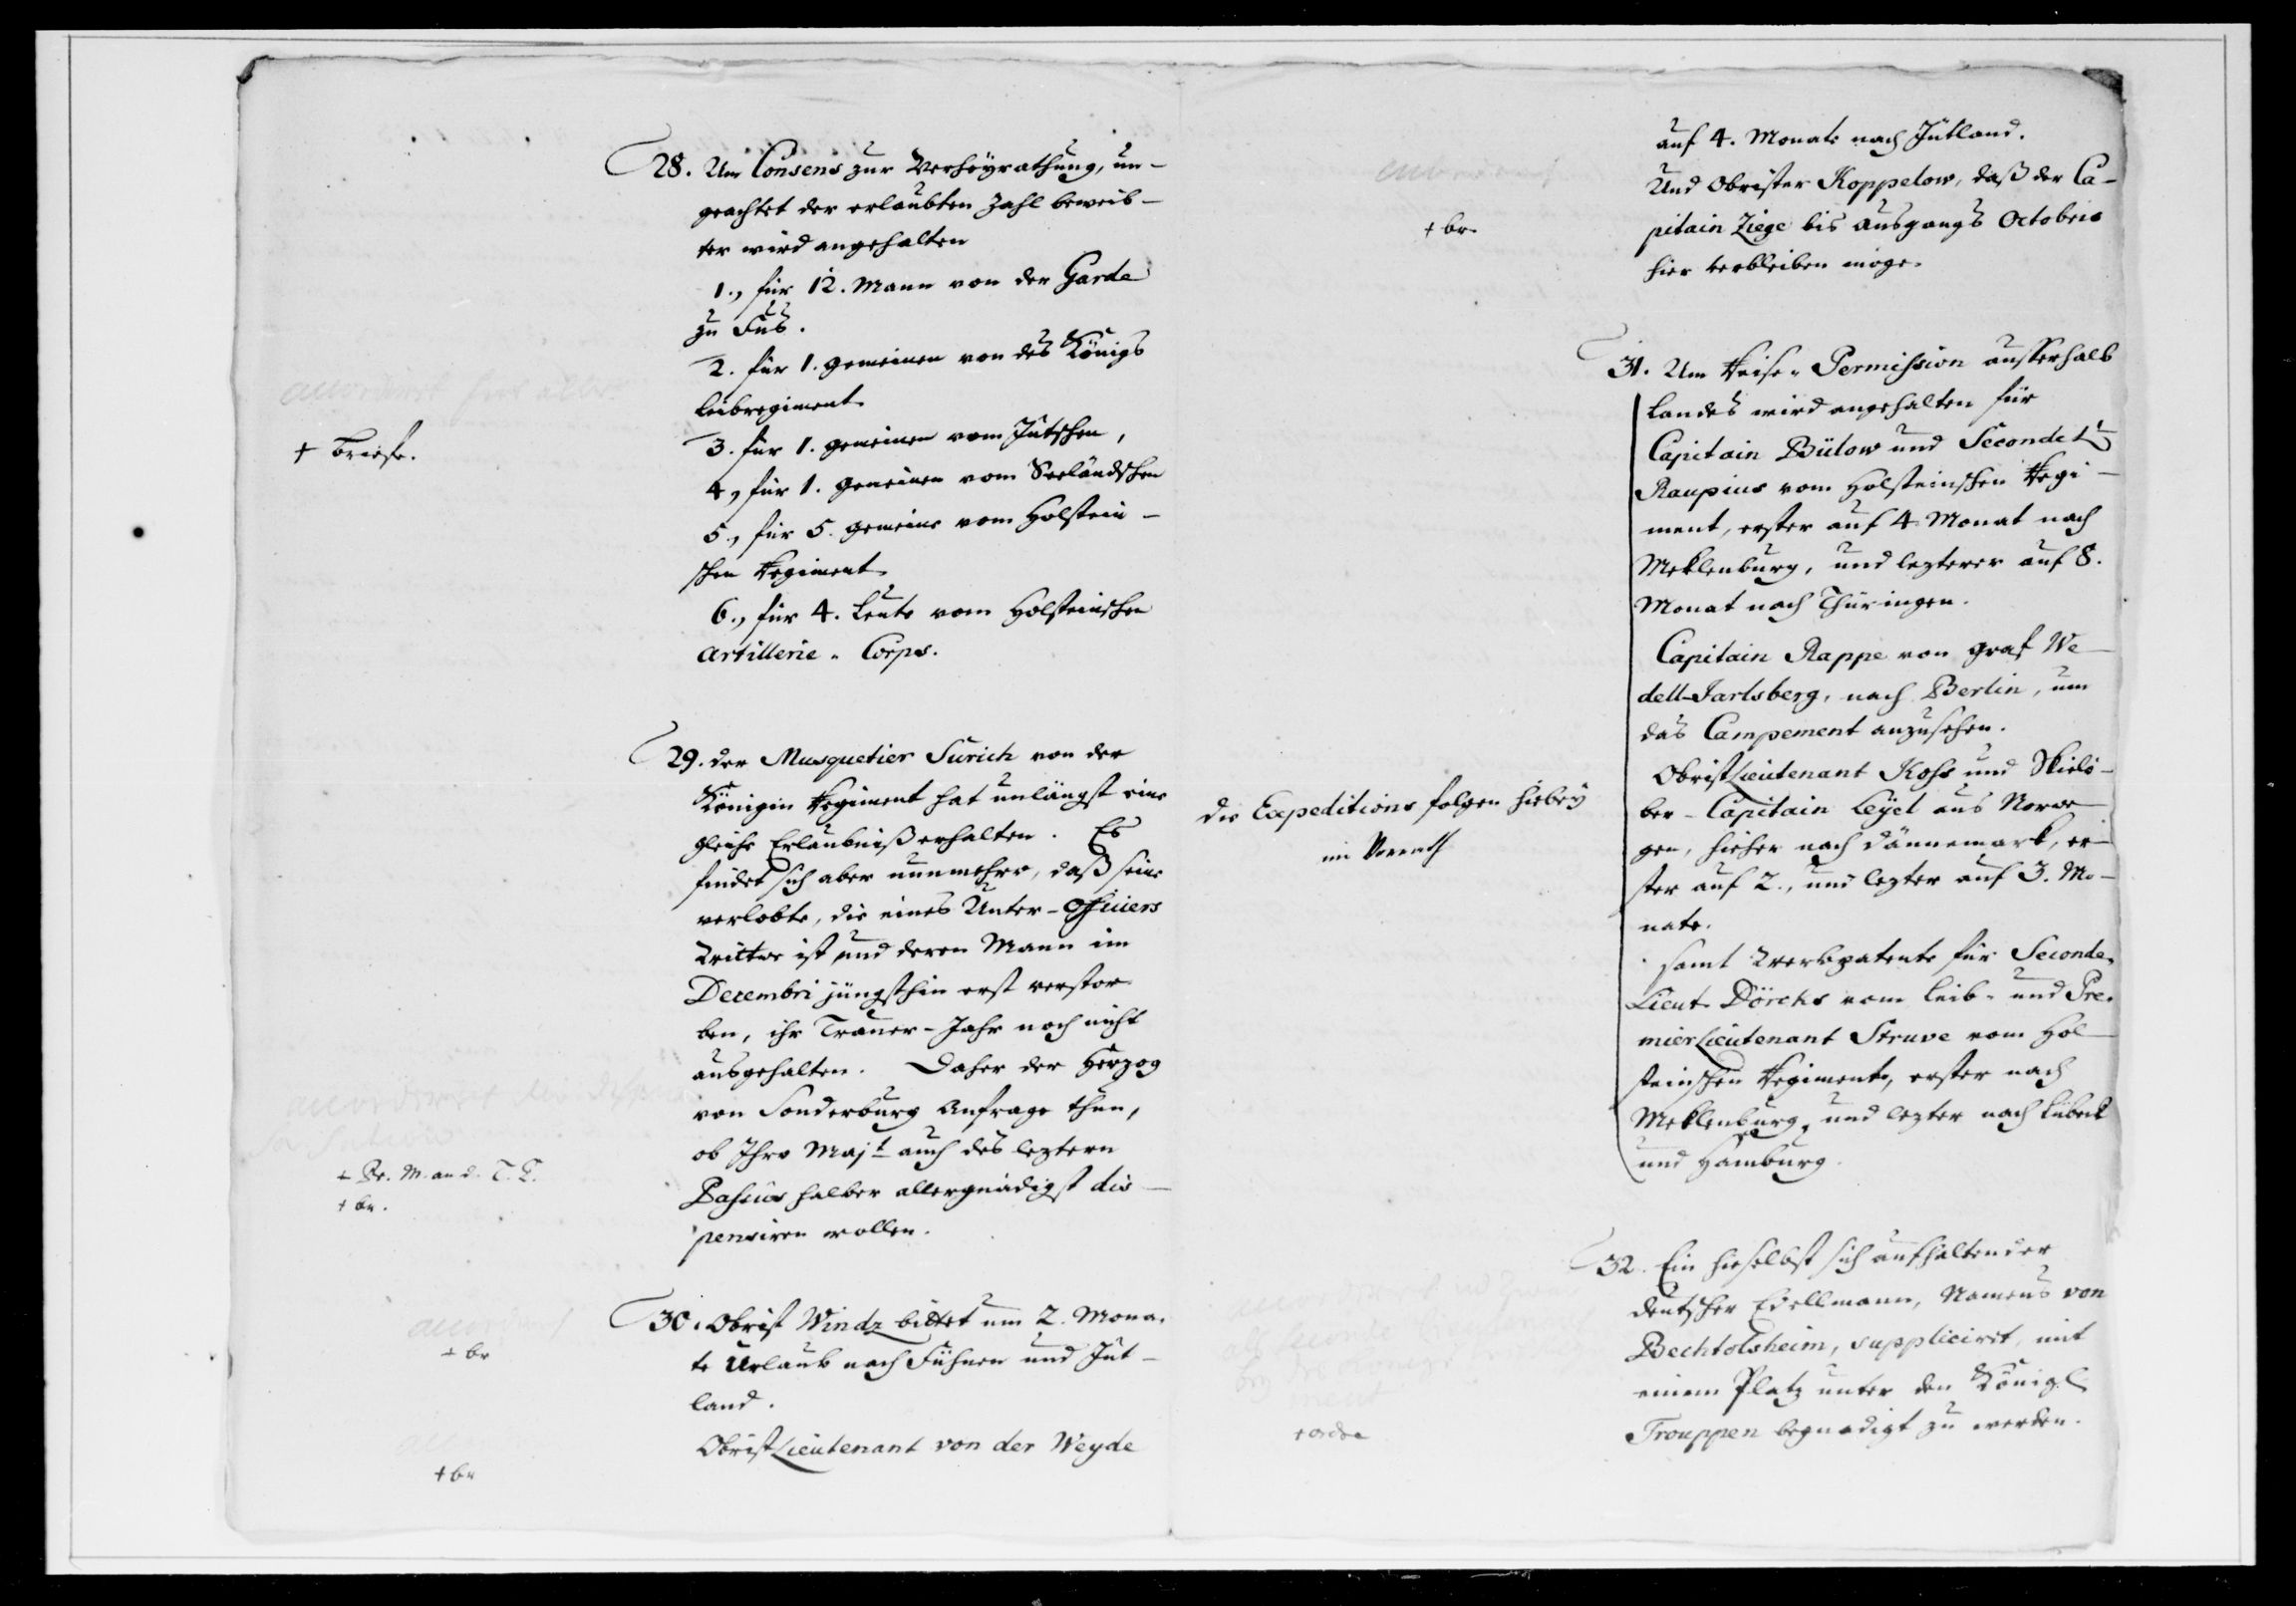 28. Um Consens zur Verheyrathung, un-
geachtet der erlaubten Zahl beweib-
ter wird angehalten
1., für 12. Mann von der Garde
zu Fus.
2. für 1. gemeinen von des Königs
Leibregiment.
3. für 1. gemeinen vom Jütschen,
4., für 1. gemeinen vom Seeländschen
5., für 5. gemeine vom Holstein-
schen Regiment.
6., für 4. Leute vom Holsteinschen
Artillerie-Corps.
accordiret für alle
+ Briefe.
29. der Musquetier Surich von der
Königin Regiment hat unlängst eine
gleiche Erlaubniß erhalten. Es
findet sich aber nunmehro, daß seine
verlobte, die eines Unter-Officiers
Wittwe ist und deren Mann im
Decembri jüngsthin erst verstor-
ben, ihr Trauer-Jahr noch nicht
ausgehalten. Daher der Herzog
von Sonderburg Anfrage thun,
ob Ihro Majt auch des leztern
Passus halber allergnädigst dis-
pensiren wollen.
accorderet
+ Br. M. and. T. P.
+ br.
30. Obrist Windz bittet um 2. Mona-
te Urlaub nach Fühnen und Jüt-
land.
+ br
ObristLieutenant von der Weyde
+ br
auf 4. Monate nach Jütland.
Und Obrister Koppelow, daß der Ca-
pitain Ziege bis Ausgangs Octobris
hier verbleiben möge.
+ br.
31. Um Reise-Permission ausserhalb
Landes wird angehalten für
Capitain Bülow und Seconde Lt
Raupius vom Holsteinschen Regi-
ment, erster auf 4. Monat nach
Meklenburg, und lezterer auf 8.
Monat nach Thüringen.
Capitain Rappe von Graf We-
dell-Jarlsberg, nach Berlin, um
das Campement anzusehen.
ObristLieutenant Koss und Skielö-
ber-Capitain Leyel aus Norwe-
gen, hieher nach Dännemark, er-
ster auf 2., und lezter auf 3. Mo-
nate.
samt Werbpatente für Seconde-
Lieut. Dörcks vom Leib- und Pre-
mierLieutenant Struve vom Hol-
steinschen Regimente, erster nach
Meklenburg, und lezter nach Lübeck
und Hamburg.
die Expeditions folgen hiebey
im Vorrath
32. Ein hieselbst sich aufhaltender
deutscher Edellmann, Namens von
Bechtolsheim, suppliciret, mit
einem Platz unter den Königl.
Trouppen begnadigt zu werden.
+ ordre